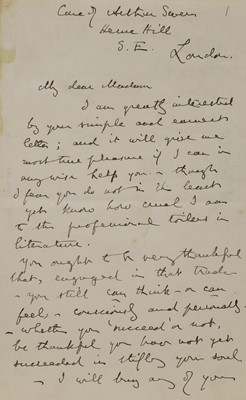 Care of Arthur Severn
Herne Hill
S.E.
London.
My dear Madam
I am greatly interested
by your simple and earnest
letter; and it will give me
most true pleasure if I can in
any wise help you - though
I fear you do not in the least
yet know how cruel I am
to the professional toilers in
literature.
You ought to be very thankful
that, engaged in that trade
- you still can think - or can
feel, - consciously and personally.
- whether you 'succeed' or not,
be thankful you have not yet
succeeded in stifling your soul
- I will buy any of your